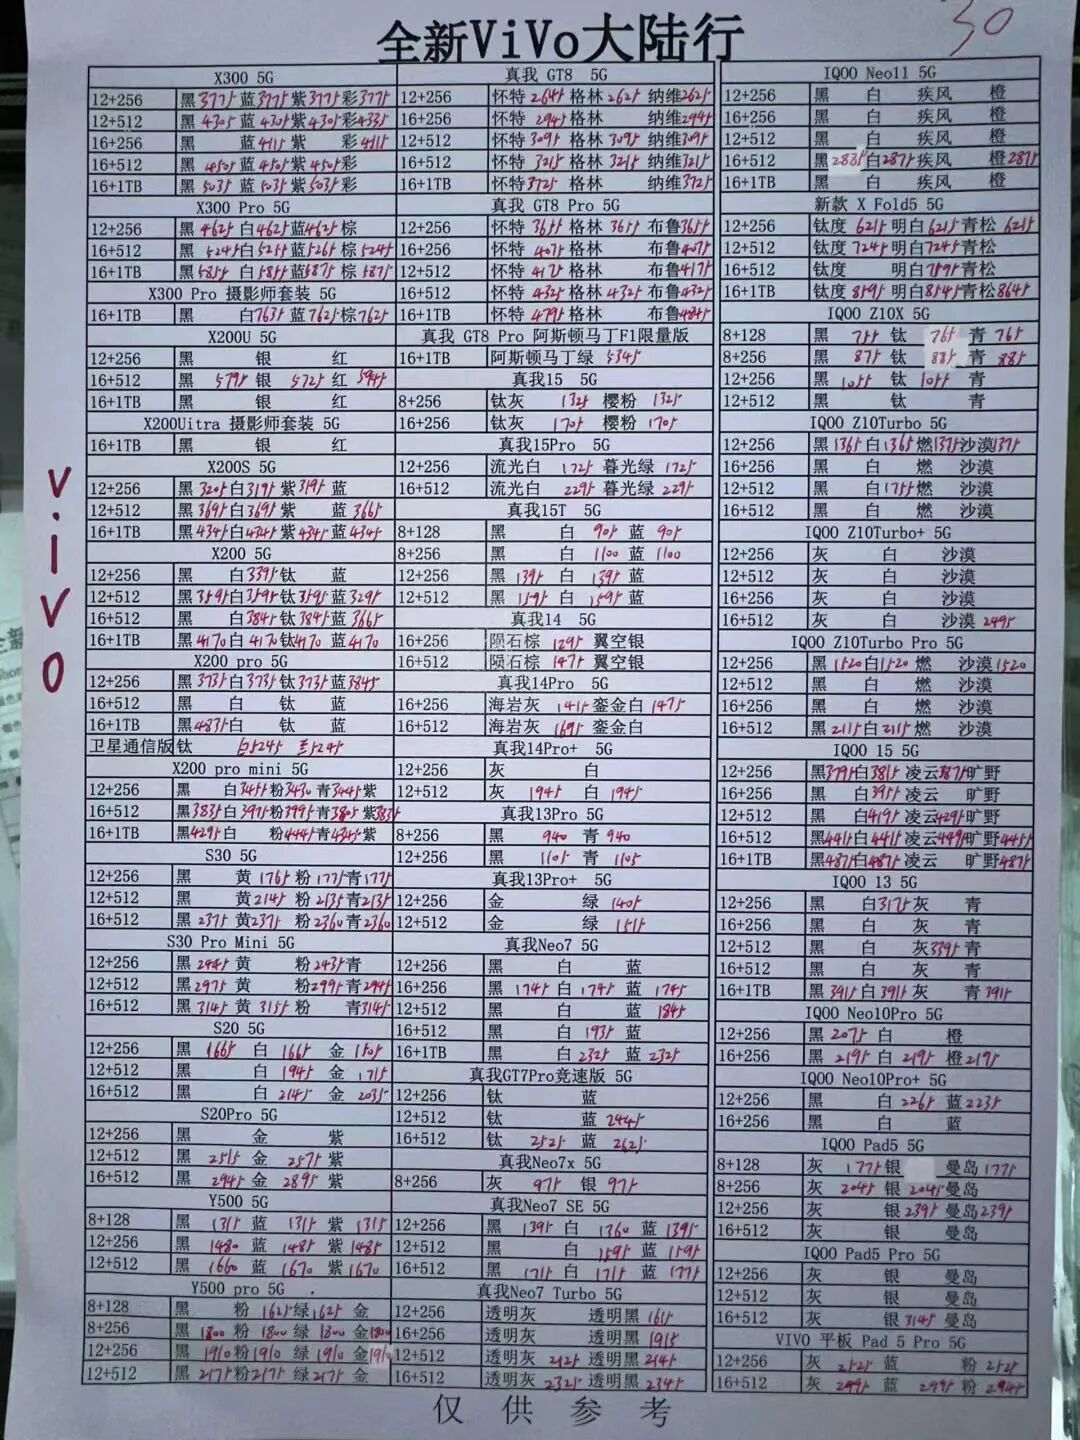 全新ViVo大陆行
30
vivo
X300 5G
12+256 黑3775 蓝3775 紫3775 彩3775
12+512 黑4305 蓝4305 紫4305 彩4335
16+256 黑 蓝4115 紫 彩4115
16+512 黑4505 蓝4505 紫4505 彩
16+1TB 黑5035 蓝5035 紫5035 彩
X300 Pro 5G
12+256 黑4625 白4625 蓝4625 棕
16+512 黑5245 白5255 蓝5265 棕5245
16+1TB 黑5855 白5855 蓝5875 棕5875
X300 Pro 摄影师套装 5G
16+1TB 黑 白7635 蓝7625 棕7625
X200U 5G
12+256 黑 银 红
16+512 黑5795 银5725 红5945
16+1TB 黑 银 红
X200Uitra 摄影师套装 5G
16+1TB 黑 银 红
X200S 5G
12+256 黑3205 白3195 紫3195 蓝
12+512 黑3695 白3695 紫 蓝3665
16+1TB 黑4345 白4345 紫4345 蓝4345
X200 5G
12+256 黑 白3395 钛 蓝
12+512 黑3595 白3595 钛3595 蓝3295
16+512 黑 白3845 钛3845 蓝3665
16+1TB 黑4170 白4170 钛4170 蓝4170
X200 pro 5G
12+256 黑3735 白3735 钛3735 蓝3845
16+512 黑 白 钛 蓝
16+1TB 黑4835 白 钛 蓝
卫星通信版 钛 白5245 5245
X200 pro mini 5G
12+256 黑 白3455 粉3430 青3445 紫
16+512 黑3835 白3975 粉3995 青3805 紫3835
16+1TB 黑4295 白 粉4445 青4345 紫
S30 5G
12+256 黑 黄1765 粉1775 青1775
12+512 黑 黄2145 粉2135 青2135
16+512 黑2375 黄2375 粉2360 青2360
S30 Pro Mini 5G
12+256 黑2445 黄 粉2435 青
12+512 黑2975 黄 粉2995 青2945
16+512 黑3145 黄3155 粉 青3145
S20 5G
12+256 黑1665 白1665 金1505
12+512 黑 白1945 金1715
16+512 黑 白2145 金2035
S20Pro 5G
12+256 黑 金 紫
12+512 黑2515 金2575 紫
16+512 黑2945 金2895 紫
Y500 5G
8+128 黑1315 蓝1315 紫1315
12+256 黑1480 蓝1485 紫1485
12+512 黑1660 蓝1670 紫1670
Y500 pro 5G
8+128 黑 粉1625 绿1625 金
8+256 黑1800 粉1800 绿1800 金1800
12+256 黑1910 粉1910 绿1910 金1910
12+512 黑2175 粉2175 绿2175 金
真我 GT8 5G
12+256 怀特2645 格林2625 纳维2625
16+256 怀特2945 格林 纳维2995
12+512 怀特3095 格林3095 纳维3095
16+512 怀特3215 格林3215 纳维3215
16+1TB 怀特3725 格林 纳维3725
真我 GT8 Pro 5G
12+256 怀特3655 格林3655 布鲁3655
16+256 怀特4075 格林 布鲁4075
12+512 怀特4175 格林 布鲁4175
16+512 怀特4325 格林4325 布鲁4325
16+1TB 怀特4795 格林 布鲁4845
真我 GT8 Pro 阿斯顿马丁F1限量版
16+1TB 阿斯顿马丁绿 5345
真我15 5G
8+256 钛灰 1325 樱粉 1325
16+256 钛灰 1705 樱粉 1705
真我15Pro 5G
12+256 流光白 1725 暮光绿 1725
16+512 流光白 2295 暮光绿 2295
真我15T 5G
8+128 黑 白905 蓝905
8+256 黑 白1100 蓝1100
12+256 黑1395 白1395 蓝
12+512 黑1595 白1595 蓝
真我14 5G
16+256 陨石棕 1295 翼空银
16+512 陨石棕 1475 翼空银
真我14Pro 5G
16+256 海岩灰 1415 銮金白 1475
16+512 海岩灰 1695 銮金白
真我14Pro+ 5G
12+256 灰 白
16+512 灰1945 白1945
真我13Pro 5G
8+256 黑940 青940
12+256 黑1105 青1105
真我13Pro+ 5G
12+256 金 绿1405
12+512 金 绿1515
真我Neo7 5G
12+256 黑 白 蓝
16+256 黑1745 白1745 蓝1745
12+512 黑 白 蓝1845
16+512 黑 白1935 蓝
16+1TB 黑 白2325 蓝2325
真我GT7Pro竞速版 5G
12+256 钛 蓝
12+512 钛 蓝2445
16+512 钛2525 蓝2625
真我Neo7x 5G
8+256 灰975 银975
真我Neo7 SE 5G
12+256 黑1395 白1360 蓝1395
12+512 黑 白1595 蓝1595
16+512 黑1715 白1715 蓝1775
真我Neo7 Turbo 5G
12+256 透明灰 透明黑1615
16+256 透明灰 透明黑1915
12+512 透明灰2125 透明黑2145
16+512 透明灰2325 透明黑2345
IQOO Neo11 5G
12+256 黑 白 疾风 橙
16+256 黑 白 疾风 橙
12+512 黑 白 疾风 橙
16+512 黑2835 白2875 疾风 橙2875
16+1TB 黑 白 疾风 橙
新款 X Fold5 5G
12+256 钛度6215 明白6215 青松6215
12+512 钛度7245 明白7245 青松
16+512 钛度 明白7595 青松
16+1TB 钛度8595 明白8545 青松8645
IQOO Z10X 5G
8+128 黑755 钛765 青765
8+256 黑875 钛885 青885
12+256 黑1055 钛1055 青
12+512 黑 钛 青
IQOO Z10Turbo 5G
12+256 黑1365 白1365 燃1375 沙漠1375
16+256 黑 白 燃 沙漠
12+512 黑 白1755 燃 沙漠
16+512 黑 白 燃 沙漠
IQOO Z10Turbo+ 5G
12+256 灰 白 沙漠
12+512 灰 白 沙漠
16+256 灰 白 沙漠
16+512 灰 白 沙漠2495
IQOO Z10Turbo Pro 5G
12+256 黑1520 白1520 燃 沙漠1520
12+512 黑 白 燃 沙漠
16+256 黑 白 燃 沙漠
16+512 黑2115 白2115 燃 沙漠
IQOO 15 5G
12+256 黑3795 白3815 凌云3875 旷野
16+256 黑 白3955 凌云 旷野
12+512 黑 白4195 凌云4295 旷野
16+512 黑4415 白4415 凌云4495 旷野4455
16+1TB 黑4875 白4875 凌云 旷野4875
IQOO 13 5G
12+256 黑 白3175 灰 青
16+256 黑 白 灰 青
12+512 黑 白 灰3395 青
16+512 黑 白 灰 青
16+1TB 黑3915 白3915 灰 青3915
IQOO Neo10Pro 5G
12+256 黑2075 白 橙
16+256 黑2195 白2195 橙2195
IQOO Neo10Pro+ 5G
12+256 黑 白2265 蓝2235
16+256 黑 白 蓝
IQOO Pad5 5G
8+128 灰1775 银 曼岛1775
8+256 灰2045 银2045 曼岛
12+256 灰 银2395 曼岛2395
16+512 灰 银 曼岛
IQOO Pad5 Pro 5G
12+256 灰 银 曼岛
12+512 灰 银 曼岛
16+512 灰 银3145 曼岛
VIVO 平板 Pad 5 Pro 5G
12+256 灰2525 蓝 粉2525
16+512 灰2995 蓝2995 粉2945
仅供参考